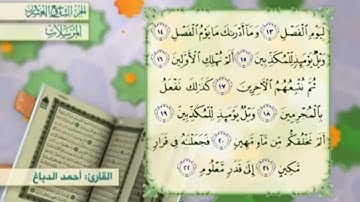 الجزء التاسع والعشرون
المرسلات
لِيَوْمِ ٱلْفَصْلِ ١٣ وَمَآ أَدْرَىٰكَ مَا يَوْمُ ٱلْفَصْلِ ١٤
وَيْلٌ يَوْمَئِذٍ لِّلْمُكَذِّبِينَ ١٥ أَلَمْ نُهْلِكِ ٱلْأَوَّلِينَ ١٦
ثُمَّ نُتْبِعُهُمُ ٱلْآخِرِينَ ١٧ كَذَٰلِكَ نَفْعَلُ
بِٱلْمُجْرِمِينَ ١٨ وَيْلٌ يَوْمَئِذٍ لِّلْمُكَذِّبِينَ ١٩
أَلَمْ نَخْلُقكُّم مِّن مَّآءٍ مَّهِينٍ ٢٠ فَجَعَلْنَٰهُ فِى قَرَارٍ
مَّكِينٍ ٢١ إِلَىٰ قَدَرٍ مَّعْلُومٍ ٢٢
القارئ: أحمد الدباغ